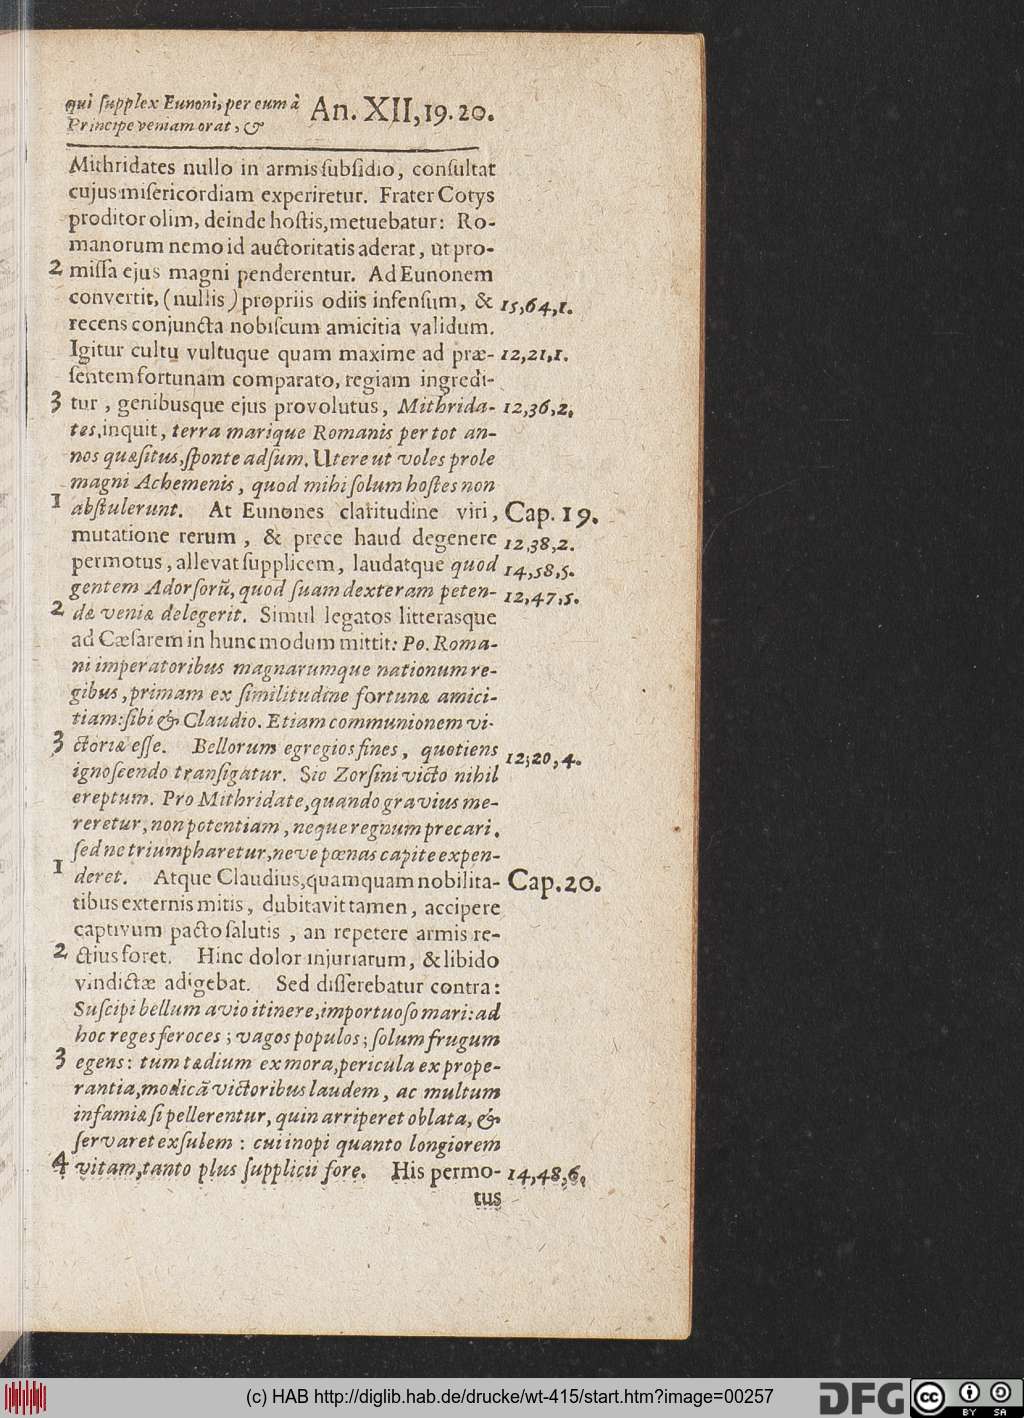 qui ſupplex Eunoni, per eum à
Principe veniam orat, &
An. XII, 19. 20.
Mithridates nullo in armis ſubſidio, conſultat
cujus miſericordiam experiretur. Frater Cotys
proditor olim, deinde hoſtis, metuebatur: Ro-
manorum nemo id auctoritatis aderat, ut pro-
2 miſſa ejus magni penderentur. Ad Eunonem
convertit, (nullis) propriis odiis infenſum, & 15,64,1.
recens conjuncta nobiſcum amicitia validum.
Igitur cultu vultuque quam maxime ad præ- 12,21,1.
ſentem fortunam comparato, regiam ingredi-
3 tur, genibusque ejus provolutus, Mithrida- 12,36,2.
tes, inquit, terra marique Romanis per tot an-
nos quæſitus, ſponte adſum. Utere ut voles prole
magni Achemenis, quod mihi ſolum hoſtes non
1 abſtulerunt. At Eunones claritudine viri, Cap. 19.
mutatione rerum, & prece haud degenere 12,38,2.
permotus, allevat ſupplicem, laudatque quod 14,58,5.
gentem Adorſorũ, quod ſuam dexteram peten- 12,47,5.
2 dæ veniæ delegerit. Simul legatos litterasque
ad Cæſarem in hunc modum mittit: Po. Roma-
ni imperatoribus magnarumque nationum re-
gibus, primam ex ſimilitudine fortunæ amici-
tiam: ſibi & Claudio. Etiam communionem vi-
3 ctoriæ eſſe. Bellorum egregios fines, quotiens 12,20,4.
ignoſcendo tranſigatur. Sic Zorſini victo nihil
ereptum. Pro Mithridate, quando gravius me-
reretur, non potentiam, neque regnum precari,
ſed ne triumpharetur, neve pœnas capite expen-
1 deret. Atque Claudius, quamquam nobilita- Cap. 20.
tibus externis mitis, dubitavit tamen, accipere
captivum pacto ſalutis, an repetere armis re-
2 ctius foret. Hinc dolor injuriarum, & libido
vindictæ adigebat. Sed diſſerebatur contra:
Suſcipi bellum avio itinere, importuoſo mari: ad
hoc reges feroces; vagos populos; ſolum frugum
3 egens: tum tædium ex mora, pericula ex prope-
rantia, modicã victoribus laudem, ac multum
infamiæ ſi pellerentur, quin arriperet oblata, &
ſervaret exſulem: cui inopi quanto longiorem
4 vitam, tanto plus ſupplicii fore. His permo- 14,48,6.
tus
(c) HAB http://diglib.hab.de/drucke/wt-415/start.htm?image=00257
DFG
cc BY SA